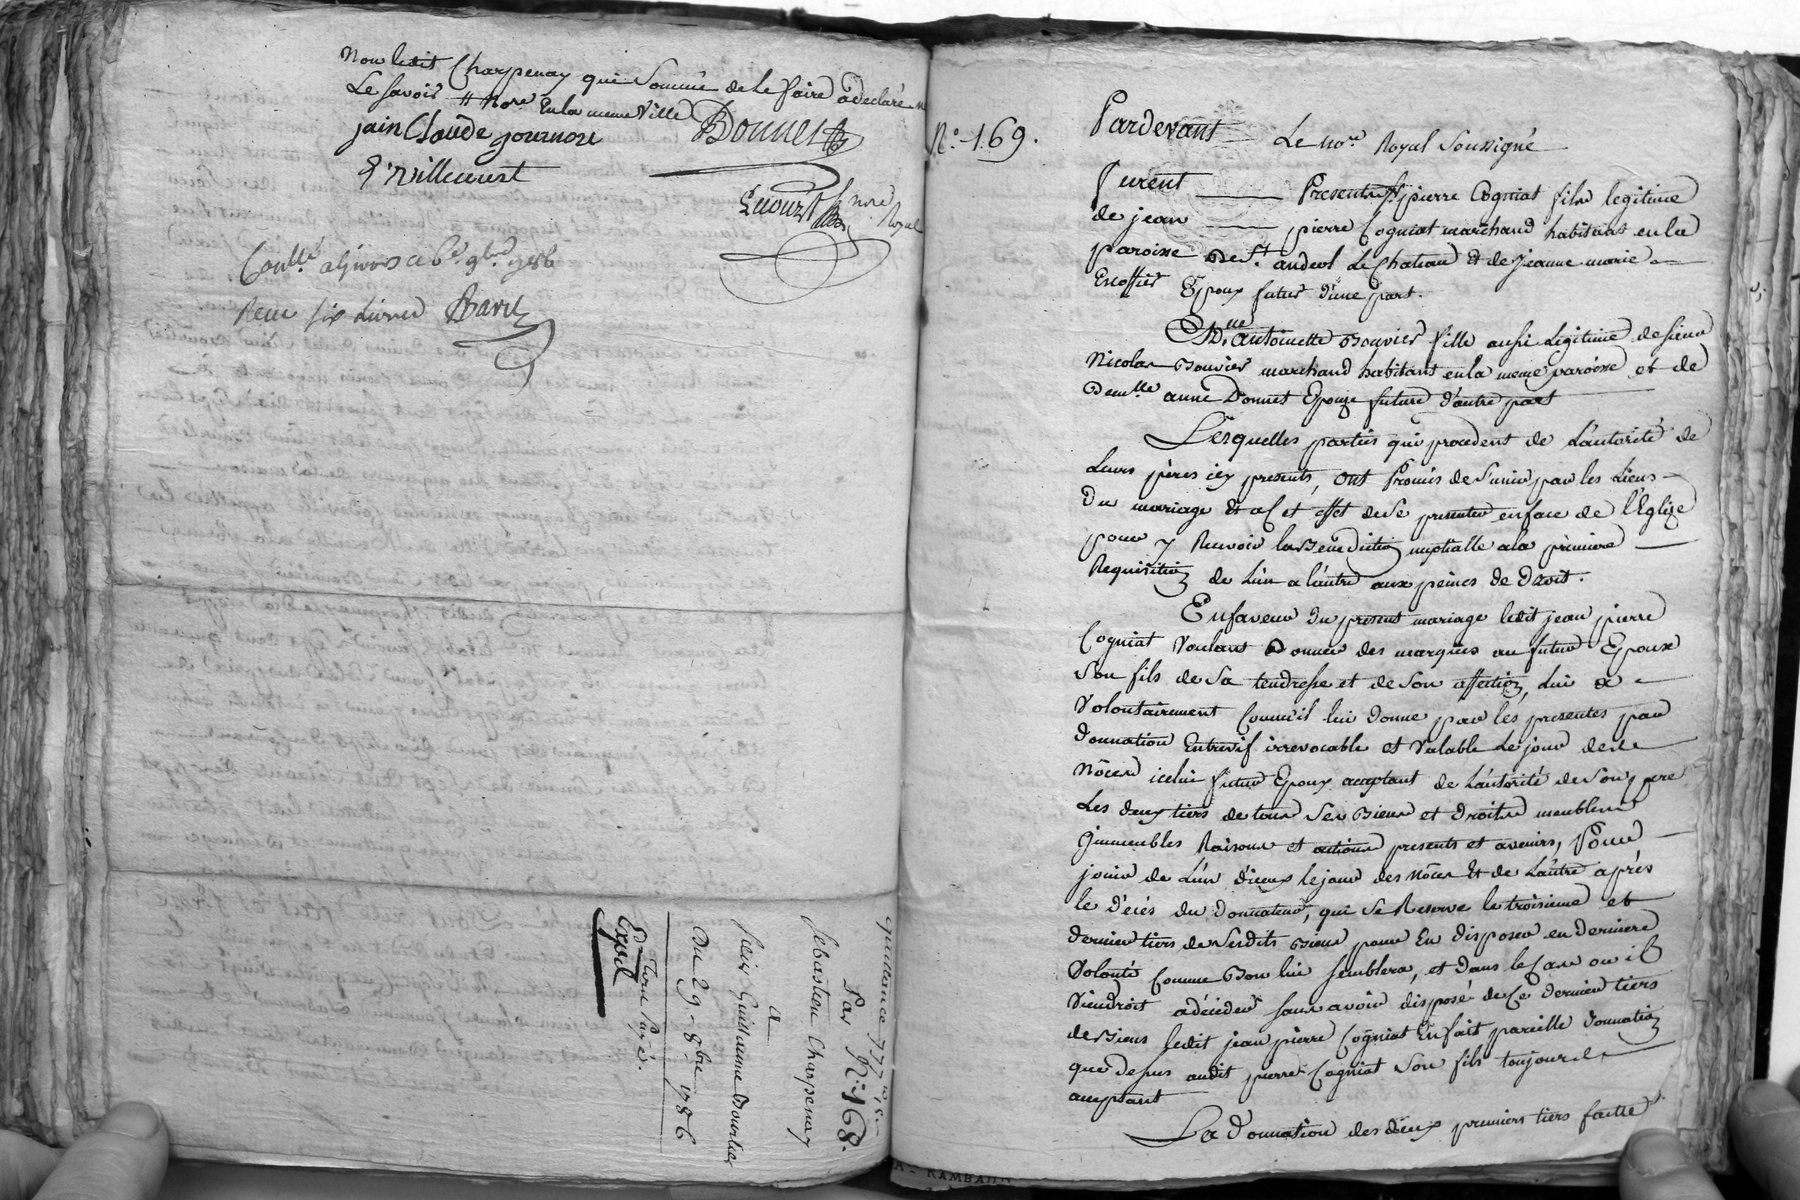 Non ledit Charpenay qui Sommé de le faire a declaré ne
Le Savoir // nore En la meme Ville
jain Claude journore
Donnet
Villecourt
nore Royal
Conllé a Givors ce 6e. 9bre. 1786
Recu six Livres
quittance 777 # 15 s
Par N: 168.
Sebastien Charpenay
a
Sieur Guillaume Bourlier
Du 29 - 8bre 1786
Exped
N.o 169.
Pardevant Le nore. Royal Soussigné
furent Presents Sr pierre Cogniat fils legitime
de jean pierre Cogniat marchand habitant en la
paroisse De St. andeol Le Chateau Et de jeanne marie
Escoffier Epoux futur d'une part.
Et Dlle antoinette Bouvier fille aussi Legitime de sieur
Nicolas Bouvier marchand habitant en la meme paroisse et de
Demlle anne Donnet Epouze future d'autre part
Lesquelles parties qui procedent de L'autorité de
Leurs peres icy presents, ont Promis de S'unir par les Liens
Du mariage Et a Cet effet de Se presenter en face de l'Eglize
pour y Recevoir la Bénédiction nuptialle a la premiere
Requisition de L'un a l'autre aux peines de Droit.
En faveur du present mariage ledit jean pierre
Cogniat Voulant Donner des marques au futur Epoux
Son fils de Sa tendresse et de Son affection, Lui a
Volontairement Comme il lui donne par les presentes par
donnation Entrevif irrevocable et Valable Le jour des
Nôces icelui futur Epoux acceptant de L'autorité de Son pere
Les deux tiers de tous Ses Biens et droits meubles
Immeubles Raisons et actions presents et avenirs, Pour
jouir de L'un d'iceux le jour des Nôces Et de L'autre après
le décès du donnateur, qui Se Reserve le troisieme et
dernier tiers de Sesdits Biens pour En disposer en derniere
Volonté Comme Bon lui Semblera, et dans le Cas ou il
Viendroit a décéder sans avoir disposé de Ce dernier tiers
de Biens ledit jean pierre Cogniat En fait pareille donnation
que dessus audit pierre Cogniat Son fils toujours
acceptant
La donnation des deux premiers tiers faitte
RAMBAH